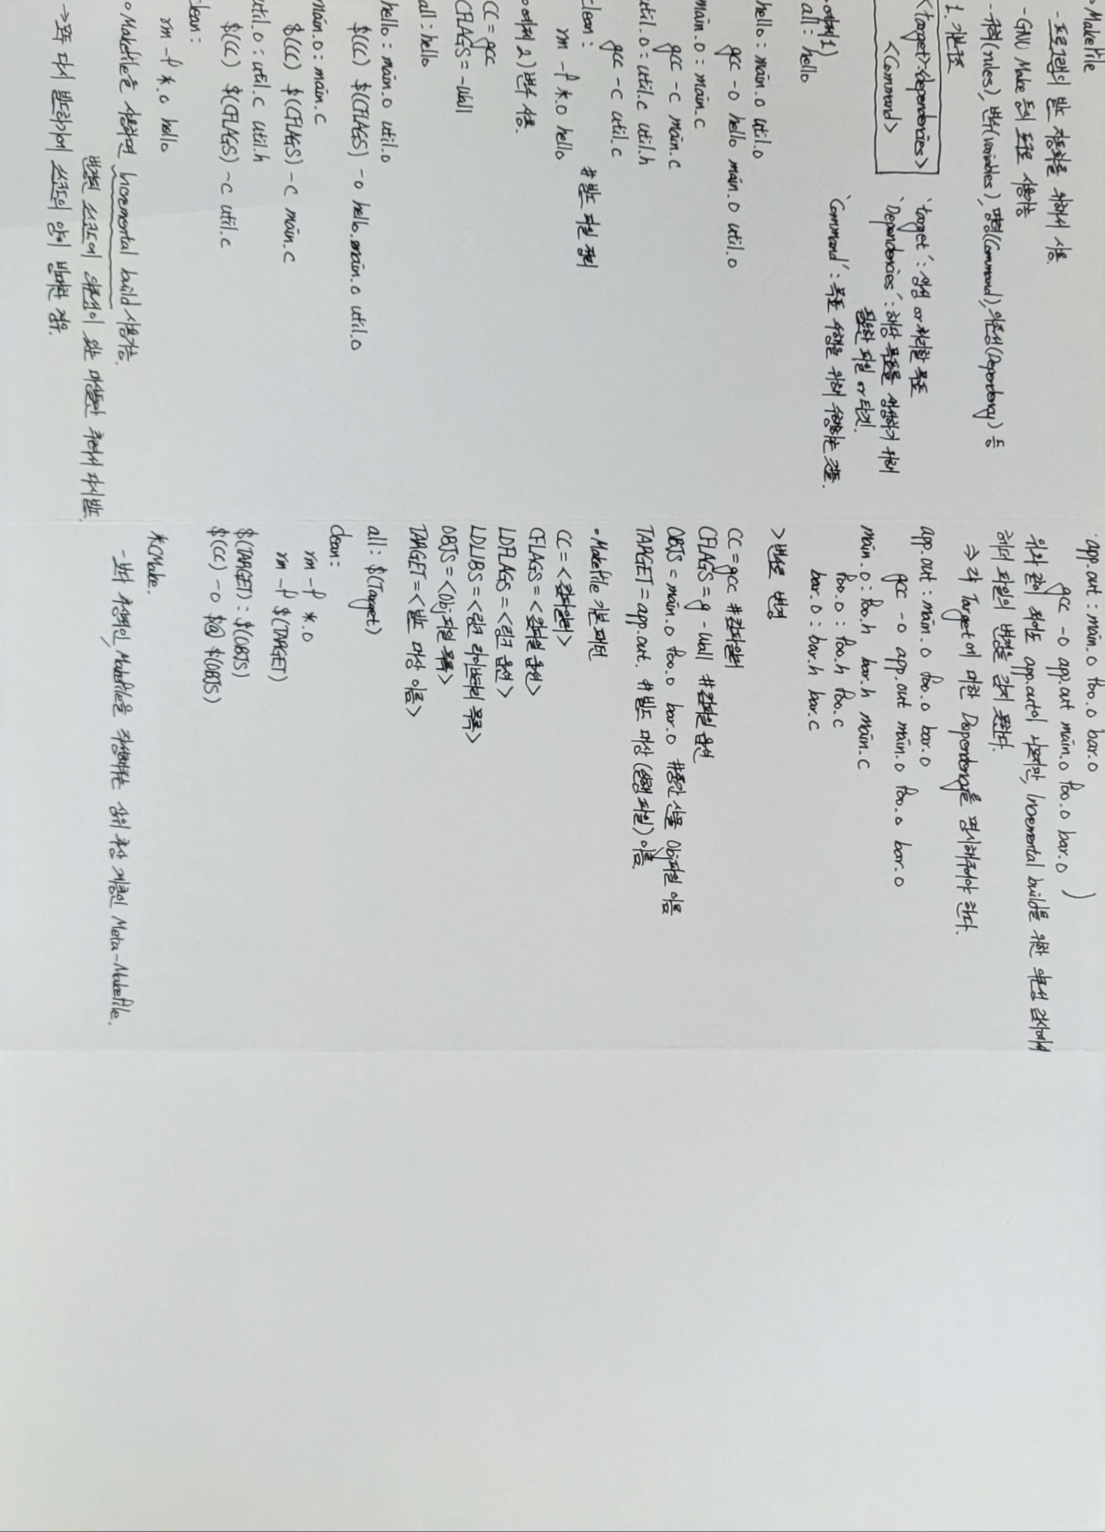 ◦Makefile
- 프로그램의 빌드 자동화를 위해서 사용.
- GNU Make 등의 도구로 사용가능
- 규칙(rules), 변수(variables), 명령(Command), 의존성(Dependency) 등
1. 기본구조
<target>:<dependencies>
<Command>
'target' : 생성 or 처리할 목표
'Dependencies' : 해당 목표를 생성하기 위해
필요한 파일 or 타겟.
'Command' : 목표 수행을 위해 수행하는 것들.
◦예제 1)
all : hello
hello : main.o util.o
gcc -o hello main.o util.o
main.o : main.c
gcc -c main.c
util.o : util.c util.h
gcc -c util.c
clean : #빌드 파일 정리
rm -f *.o hello
◦예제 2) 변수 사용.
CC = gcc
CFLAGS = -Wall
all : hello
hello : main.o util.o
$(CC) $(CFLAGS) -o hello main.o util.o
main.o : main.c
$(CC) $(CFLAGS) -c main.c
util.o : util.c util.h
$(CC) $(CFLAGS) -c util.c
clean :
rm -f *.o hello
◦Makefile을 사용하면 Incremental build 사용가능.
변경된 소스코드에 의존성이 있는 대상들만 추려서 다시 빌드.
→모두 다시 빌드하기에 소스코드의 양이 방대한 경우.
app.out : main.o foo.o bar.o
gcc -o app.out main.o foo.o bar.o )
위와 같이 해도 app.out이 나오지만, Incremental build를 위한 의존성 검사에서
헤더 파일의 변경을 감지 못한다.
⇒ 각 Target에 대한 Dependency를 명시해주어야 한다.
app.out : main.o foo.o bar.o
gcc -o app.out main.o foo.o bar.o
main.o : foo.h bar.h main.c
foo.o : foo.h foo.c
bar.o : bar.h bar.c
>변수로 변경
CC = gcc #컴파일러
CFLAGS = g -Wall #컴파일 옵션
OBJS = main.o foo.o bar.o #중간 산물 Obj파일 이름
TARGET = app.out. #빌드 대상 (실행 파일) 이름.
◦Makefile 기본 패턴
CC = <컴파일러>
CFLAGS = <컴파일 옵션>
LDFLAGS = <링크 옵션>
LDLIBS = <링크 라이브러리 목록>
OBJS = <Obj파일 목록>
TARGET = <빌드 대상 이름>
all : $(Target)
clean :
rm -f *.o
rm -f $(TARGET)
$(TARGET) : $(OBJS)
$(CC) -o $@ $(OBJS)
*CMake.
- 보다 추상적인, Makefile을 작성해주는 상위 추상 계층인 Meta-Makefile.